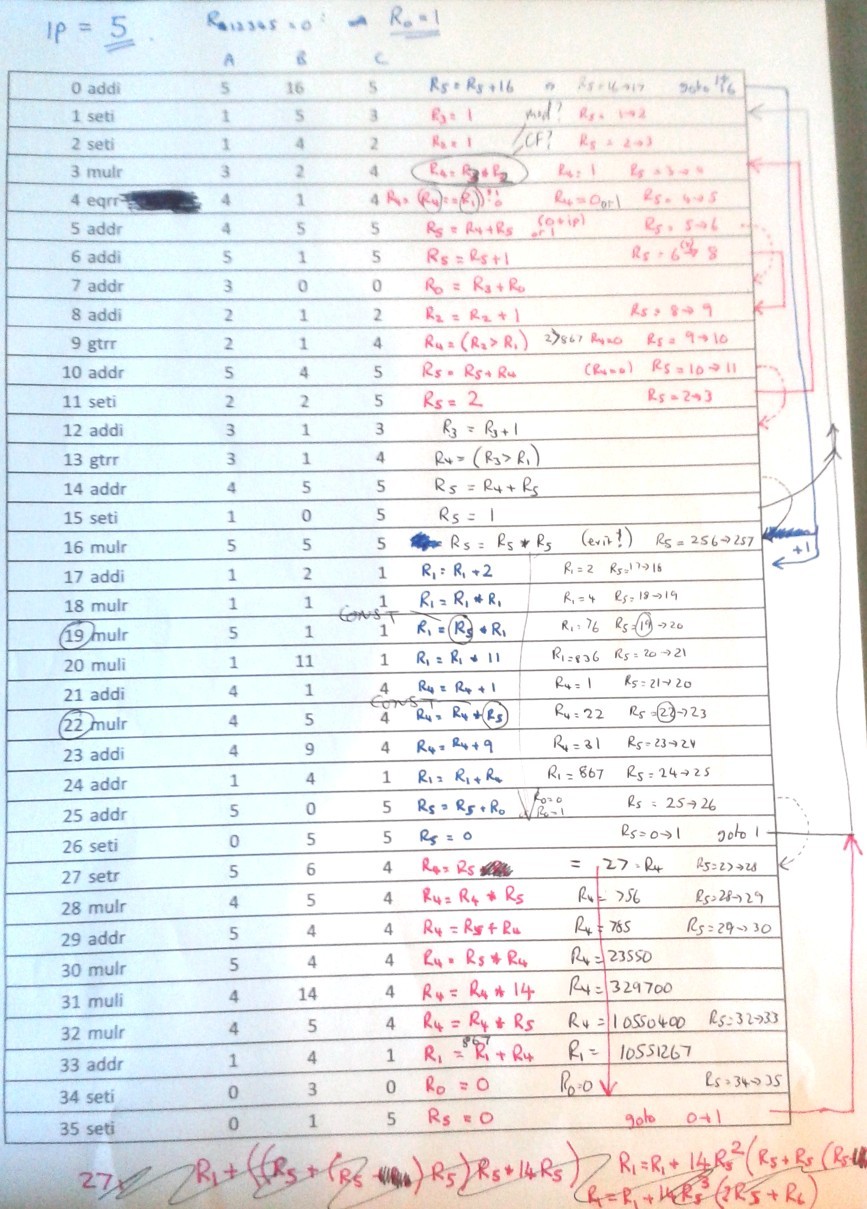 IP = 5 R012345 = 0 R0 = 1
A B C
0 addi 5 16 5 R5 = R5 + 16 R5 = 16→17 goto
1 seti 1 5 3 R3 = 1 mod? R5 = 1→2
2 seti 1 4 2 R2 = 1 CF? R5 = 2→3
3 mulr 3 2 4 R4 = R3 * R2 R4 = 1 R5 = 3→4
4 eqrr 4 1 4 R4 = (R4 == R1) R4 = 0 or 1 R5 = 4→5
5 addr 4 5 5 R5 = R4 + R5 (0 + ip) or 1 R5 = 5→6
6 addi 5 1 5 R5 = R5 + 1 R5 = 6→8
7 addr 3 0 0 R0 = R3 + R0
8 addi 2 1 2 R2 = R2 + 1 R5 = 8→9
9 gtrr 2 1 4 R4 = (R2 > R1) 2>867 R4=0 R5 = 9→10
10 addr 5 4 5 R5 = R5 + R4 (R4=0) R5 = 10→11
11 seti 2 2 5 R5 = 2 R5 = 2→3
12 addi 3 1 3 R3 = R3 + 1
13 gtrr 3 1 4 R4 = (R3 > R1)
14 addr 4 5 5 R5 = R4 + R5
15 seti 1 0 5 R5 = 1
16 mulr 5 5 5 R5 = R5 * R5 (exit!) R5 = 256→257 +1
17 addi 1 2 1 R1 = R1 + 2 R1 = 2 R5 = 17→18
18 mulr 1 1 1 R1 = R1 * R1 R1 = 4 R5 = 18→19
CONST
19 mulr 5 1 1 R1 = R5 * R1 R1 = 76 R5 = 19→20
20 muli 1 11 1 R1 = R1 * 11 R1 = 836 R5 = 20→21
21 addi 4 1 4 R4 = R4 + 1 R4 = 1 R5 = 21→20
CONST
22 mulr 4 5 4 R4 = R4 * R5 R4 = 22 R5 = 22→23
23 addi 4 9 4 R4 = R4 + 9 R4 = 31 R5 = 23→24
24 addr 1 4 1 R1 = R1 + R4 R1 = 867 R5 = 24→25
25 addr 5 0 5 R5 = R5 + R0 R0=0 R0=1 R5 = 25→26
26 seti 0 5 5 R5 = 0 R5 = 0→1 goto 1
27 setr 5 6 4 R4 = R5 = 27 = R4 R5 = 27→28
28 mulr 4 5 4 R4 = R4 * R5 R4 = 756 R5 = 28→29
29 addr 5 4 4 R4 = R5 + R4 R4 = 785 R5 = 29→30
30 mulr 5 4 4 R4 = R5 * R4 R4 = 23550
31 muli 4 14 4 R4 = R4 * 14 R4 = 329700
32 mulr 4 5 4 R4 = R4 * R5 R4 = 10550400 R5 = 32→33
867
33 addr 1 4 1 R1 = R1 + R4 R1 = 10551267
34 seti 0 3 0 R0 = 0 R0 = 0 R5 = 34→35
35 seti 0 1 5 R5 = 0 goto 0+1
27 R1 + ((R5 + (R5 R5) R5 * 14 R5) R1 = R1 + 14 R5² (R5 + R5 (R5
R1 = R1 + 14 R5³ (2R5 + R6)